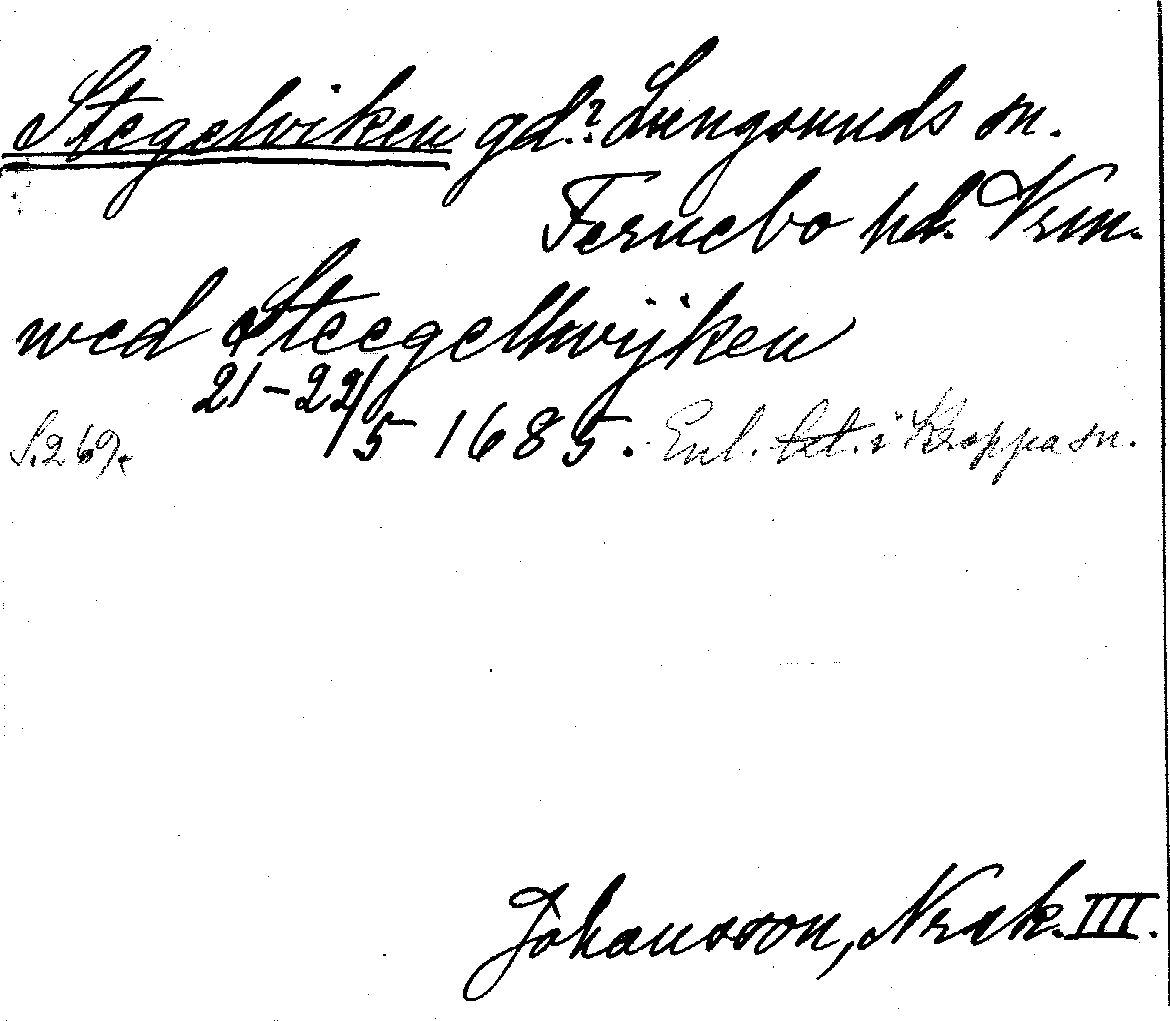 Stegelviken gd.? Lungsunds sn.
Fernebo hd. Vrm.
wed Steegelhwijken
21-22/5 1685. Enl. tct. i Kroppa sn.
S. 269.
Johansson, Nrak. III.